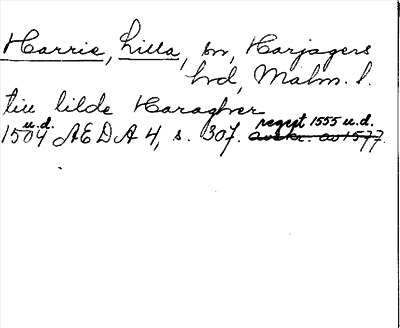 Harrie, Lilla, sn, Harjagers
hrd, Malm. l.
tiu lilde Haragher
u.d. regest 1555 u.d.
1504 AEDA 4, s. 307. avskr. av 1577.